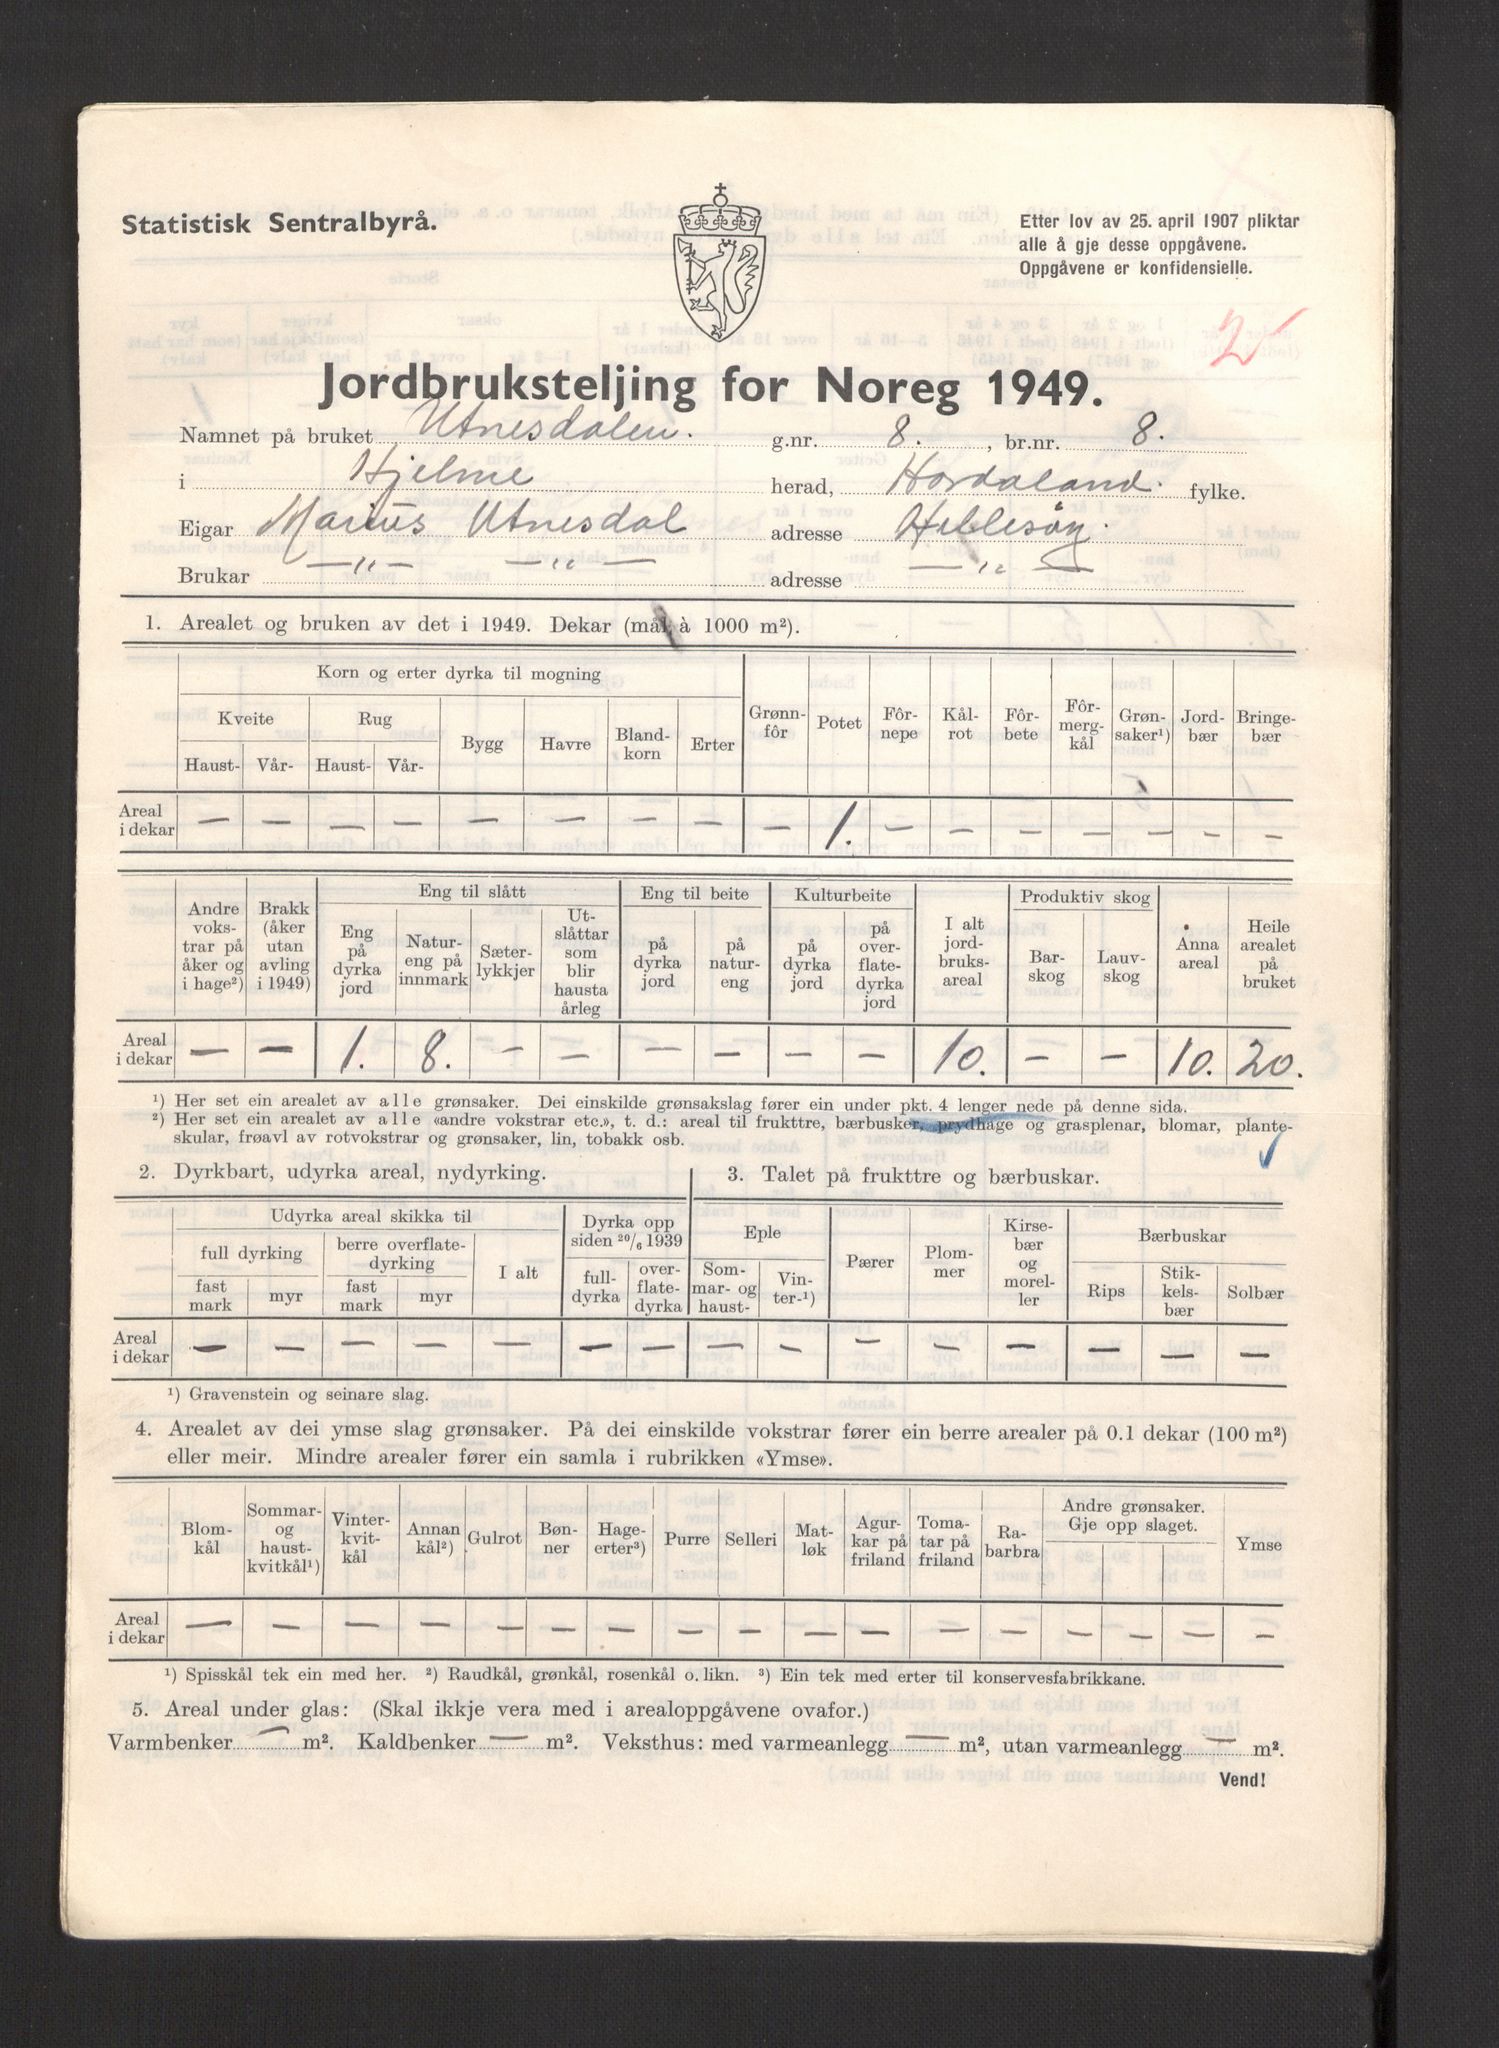 Statistisk Sentralbyrå.
Etter lov av 25. april 1907 pliktar
alle å gje desse oppgåvene.
Oppgåvene er konfidensielle.
2
Jordbruksteljing for Noreg 1949.
Namnet på bruket Utnesdalen. g.nr. 8. , br.nr. 8.
i Hjelme herad, Hordaland. fylke.
Eigar Marius Utnesdal adresse Hellesöy.
Brukar —„— —„— adresse —„—
1. Arealet og bruken av det i 1949. Dekar (mål à 1000 m²).
Korn og erter dyrka til mogning
Kveite Rug Bygg Havre Bland-korn Erter Grønn-fôr Potet Fôr-nepe Kål-rot Fôr-bete Fôr-merg-kål Grøn-saker¹) Jord-bær Bringe-bær
Haust- Vår- Haust- Vår-
Areal i dekar — — — — — — — — — 1. — — — — — — —
Andre voks-trar på åker og i hage²) Brakk (åker utan avling i 1949) Eng til slått Eng til beite Kulturbeite I alt jord-bruks-areal Produktiv skog Anna areal Heile arealet på bruket
Eng på dyrka jord Natur-eng på innmark Sæter-lykkjer Ut-slåttar som blir hausta årleg på dyrka jord på natur-eng på dyrka jord på over-flate-dyrka jord Bar-skog Lauv-skog
Areal i dekar — — 1. 8. — — — — — — 10. — — 10. 20.
¹) Her set ein arealet av alle grønsaker. Dei einskilde grønsakslag fører ein under pkt. 4 lenger nede på denne sida.
²) Her set ein arealet av alle «andre vokstrar etc.», t. d.: areal til frukttre, bærbusker, prydhage og grasplenar, blomar, plante-
skular, frøavl av rotvokstrar og grønsaker, lin, tobakk osb.
2. Dyrkbart, udyrka areal, nydyrking. 3. Talet på frukttre og bærbuskar.
Udyrka areal skikka til Dyrka opp siden 20/6 1939 Eple Pærer Plom-mer Kirse-bær og morel-ler Bærbuskar
full dyrking berre overflate-dyrking I alt full-dyrka over-flate-dyrka Som-mar- og haust- Vin-ter-¹) Rips Stik-kels-bær Solbær
fast mark myr fast mark myr
Areal i dekar — — — — — — — — — — — — — — —
¹) Gravenstein og seinare slag.
4. Arealet av dei ymse slag grønsaker. På dei einskilde vokstrar fører ein berre arealer på 0.1 dekar (100 m²)
eller meir. Mindre arealer fører ein samla i rubrikken «Ymse».
Blom-kål Sommar- og haust-kvitkål¹) Vinter-kvit-kål Annan kål²) Gulrot Bøn-ner Hage-erter³) Purre Selleri Mat-løk Agur-kar på friland Toma-tar på friland Ra-barbra Andre grønsaker. Gje opp slaget. Ymse
Areal i dekar — — — — — — — — — — — — — — — — —
¹) Spisskål tek ein med her. ²) Raudkål, grønkål, rosenkål o. likn. ³) Ein tek med erter til konservesfabrikkane.
5. Areal under glas: (Skal ikkje vera med i arealoppgåvene ovafor.)
Varmbenker — m². Kaldbenker — m². Veksthus: med varmeanlegg — m², utan varmeanlegg — m².
Vend!